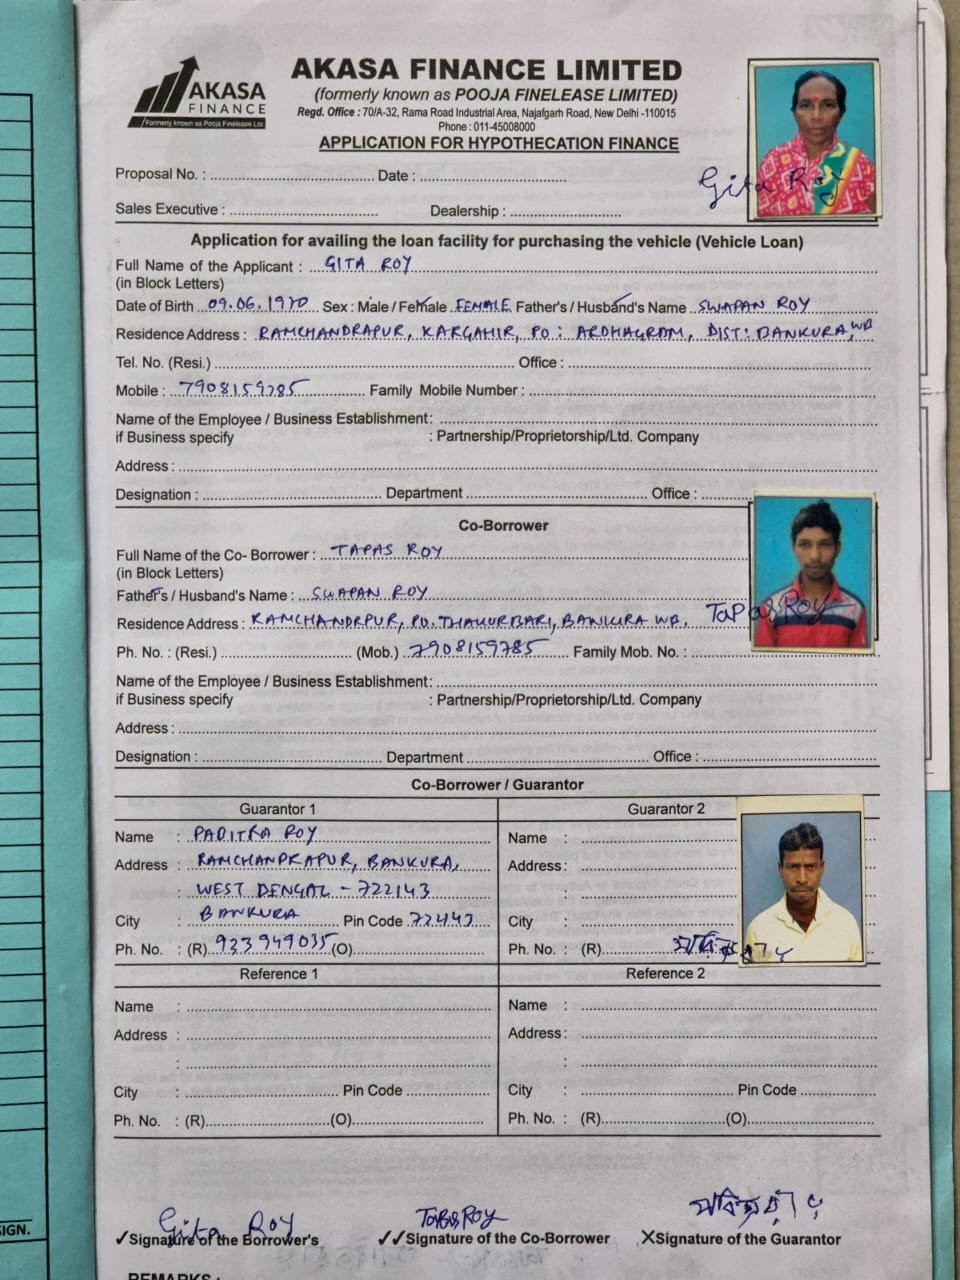 AKASA
FINANCE
Formerly known as Pooja Finelease Ltd
AKASA FINANCE LIMITED
(formerly known as POOJA FINELEASE LIMITED)
Regd. Office : 70/A-32, Rama Road Industrial Area, Najafgarh Road, New Delhi -110015
Phone : 011-45008000
APPLICATION FOR HYPOTHECATION FINANCE
Proposal No. : Date :
Gita Roy
Sales Executive : Dealership :
Application for availing the loan facility for purchasing the vehicle (Vehicle Loan)
Full Name of the Applicant : GITA ROY
(in Block Letters)
Date of Birth 09.06.1970 Sex : Male / Female FEMALE Father's / Husband's Name SWAPAN ROY
Residence Address : RAMCHANDRAPUR, KARGAHIR, PO: ARDHAGRAM, DIST: BANKURA, WB
Tel. No. (Resi.) Office :
Mobile : 7908159785 Family Mobile Number :
Name of the Employee / Business Establishment:
if Business specify : Partnership/Proprietorship/Ltd. Company
Address :
Designation : Department Office :
Co-Borrower
Full Name of the Co- Borrower : TAPAS ROY
(in Block Letters)
Father's / Husband's Name : SWAPAN ROY
Residence Address : RAMCHANDRPUR, PO. THAKURBARI, BANKURA WB. TaPas Roy
Ph. No. : (Resi.) (Mob.) 7908159785 Family Mob. No. :
Name of the Employee / Business Establishment:
if Business specify : Partnership/Proprietorship/Ltd. Company
Address :
Designation : Department Office :
Co-Borrower / Guarantor
Guarantor 1 Guarantor 2
Name : PABITRA ROY Name :
Address : RAMCHANDRAPUR, BANKURA, Address :
: WEST BENGAL - 722143 :
City : BANKURA Pin Code 722143 City :
Ph. No. : (R) 933949035 (O) Ph. No. : (R)
Reference 1 Reference 2
Name : Name :
Address : Address :
: :
City : Pin Code City : Pin Code
Ph. No. : (R) (O) Ph. No. : (R) (O)
Gita Roy TaPas Roy
Signature of the Borrower's Signature of the Co-Borrower Signature of the Guarantor
IGN.
REMARKS :